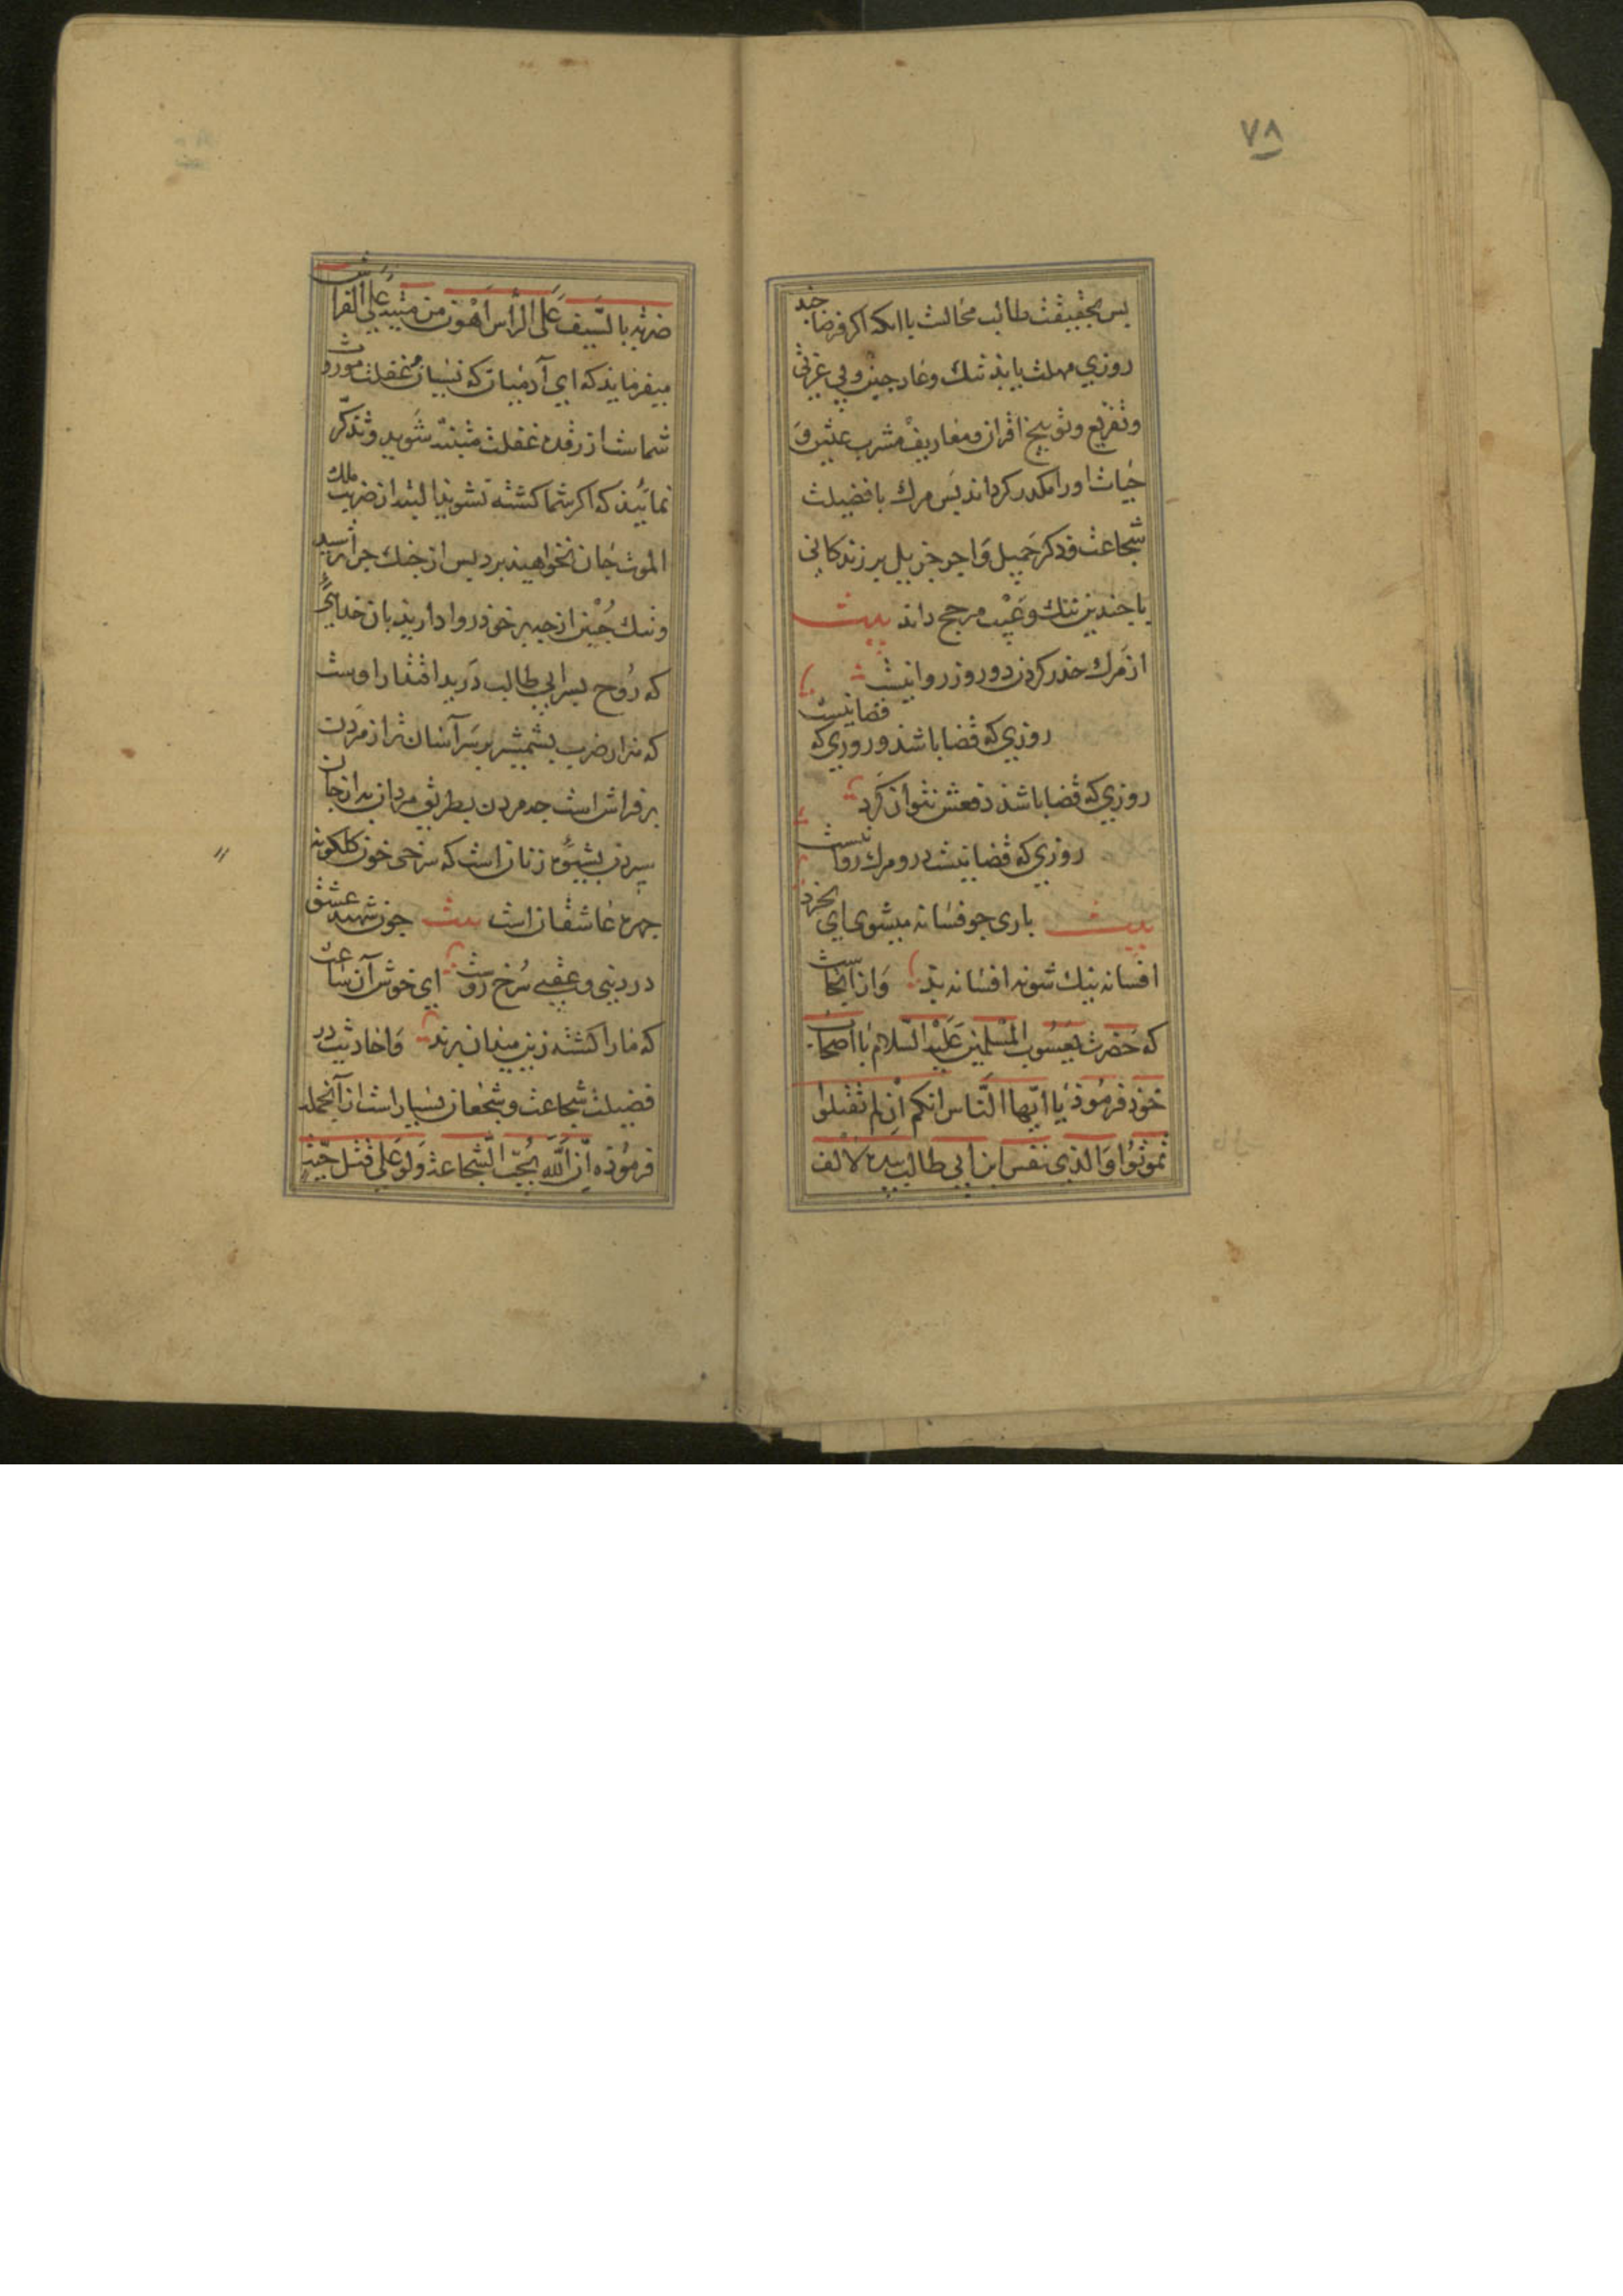 ۷۸
پس بحقیقت طالب محالت با انکه اکر فرضا چند
روزی مهلت یابد ننك وعار جبن وبی عزتی
وتقریع وتوبیخ اقران ومعاریف مشرب عیش و
حیات اورا مکدر کرداند پس مرك با فضیلت
شجاعت وذکر جمیل واجر جزیل بر زندکانی
با چندین ننك وعیب مرجح داند بیت
از مرك حذر کردن دو روز روا نیست
روزی که قضا باشد وروزی که قضا نیست
روزی که قضا باشد دفعش نتوان کرد
روزی که قضا نیست درو مرك روا نیست
بیت باری چو فسانه میشوی ای بخرد
افسانه نیك شو نه افسانه بد وازاینجاست
که حضرت یعسوب المسلمین علیه السلام با اصحاب
خود فرموذ یا ایها الناس انکم ان لم تقتلوا
تموتوا والذی نفس ابن ابی طالب بیده لالف
ضربة بالسیف علی الراس اهون من میتة علی الفراش
میفرماید که ای آدمیان که نسیان غفلت موروث
شماست از رقده غفلت متنبه شوید وتذکر
نمایید که اکر شما کشته نشوید البته از ضرب ملك
الموت جان نخواهید برد پس از جنك چرا ترسید
وننك جبن از چه بر خود روا دارید بان خدایی
که روح پسر ابی طالب در ید اقتدار اوست
که هزار ضرب بشمشیر بر سر آسان تر از مردن
بر فراش است چه مردن بطریق مردان به از جان
سپردن بشیوه زنان است که سرخی خون کلکونه
چهره عاشقان است بیت چون شهید عشق
در دنیی وعقبی سرخ روست ای خوش آن ساعت
که مارا کشته زین میدان برند واحادیث در
فضیلت شجاعت وشجعان بسیار است از آنجمله
فرموذه ان الله یحب الشجاعة ولو علی قتل حیة